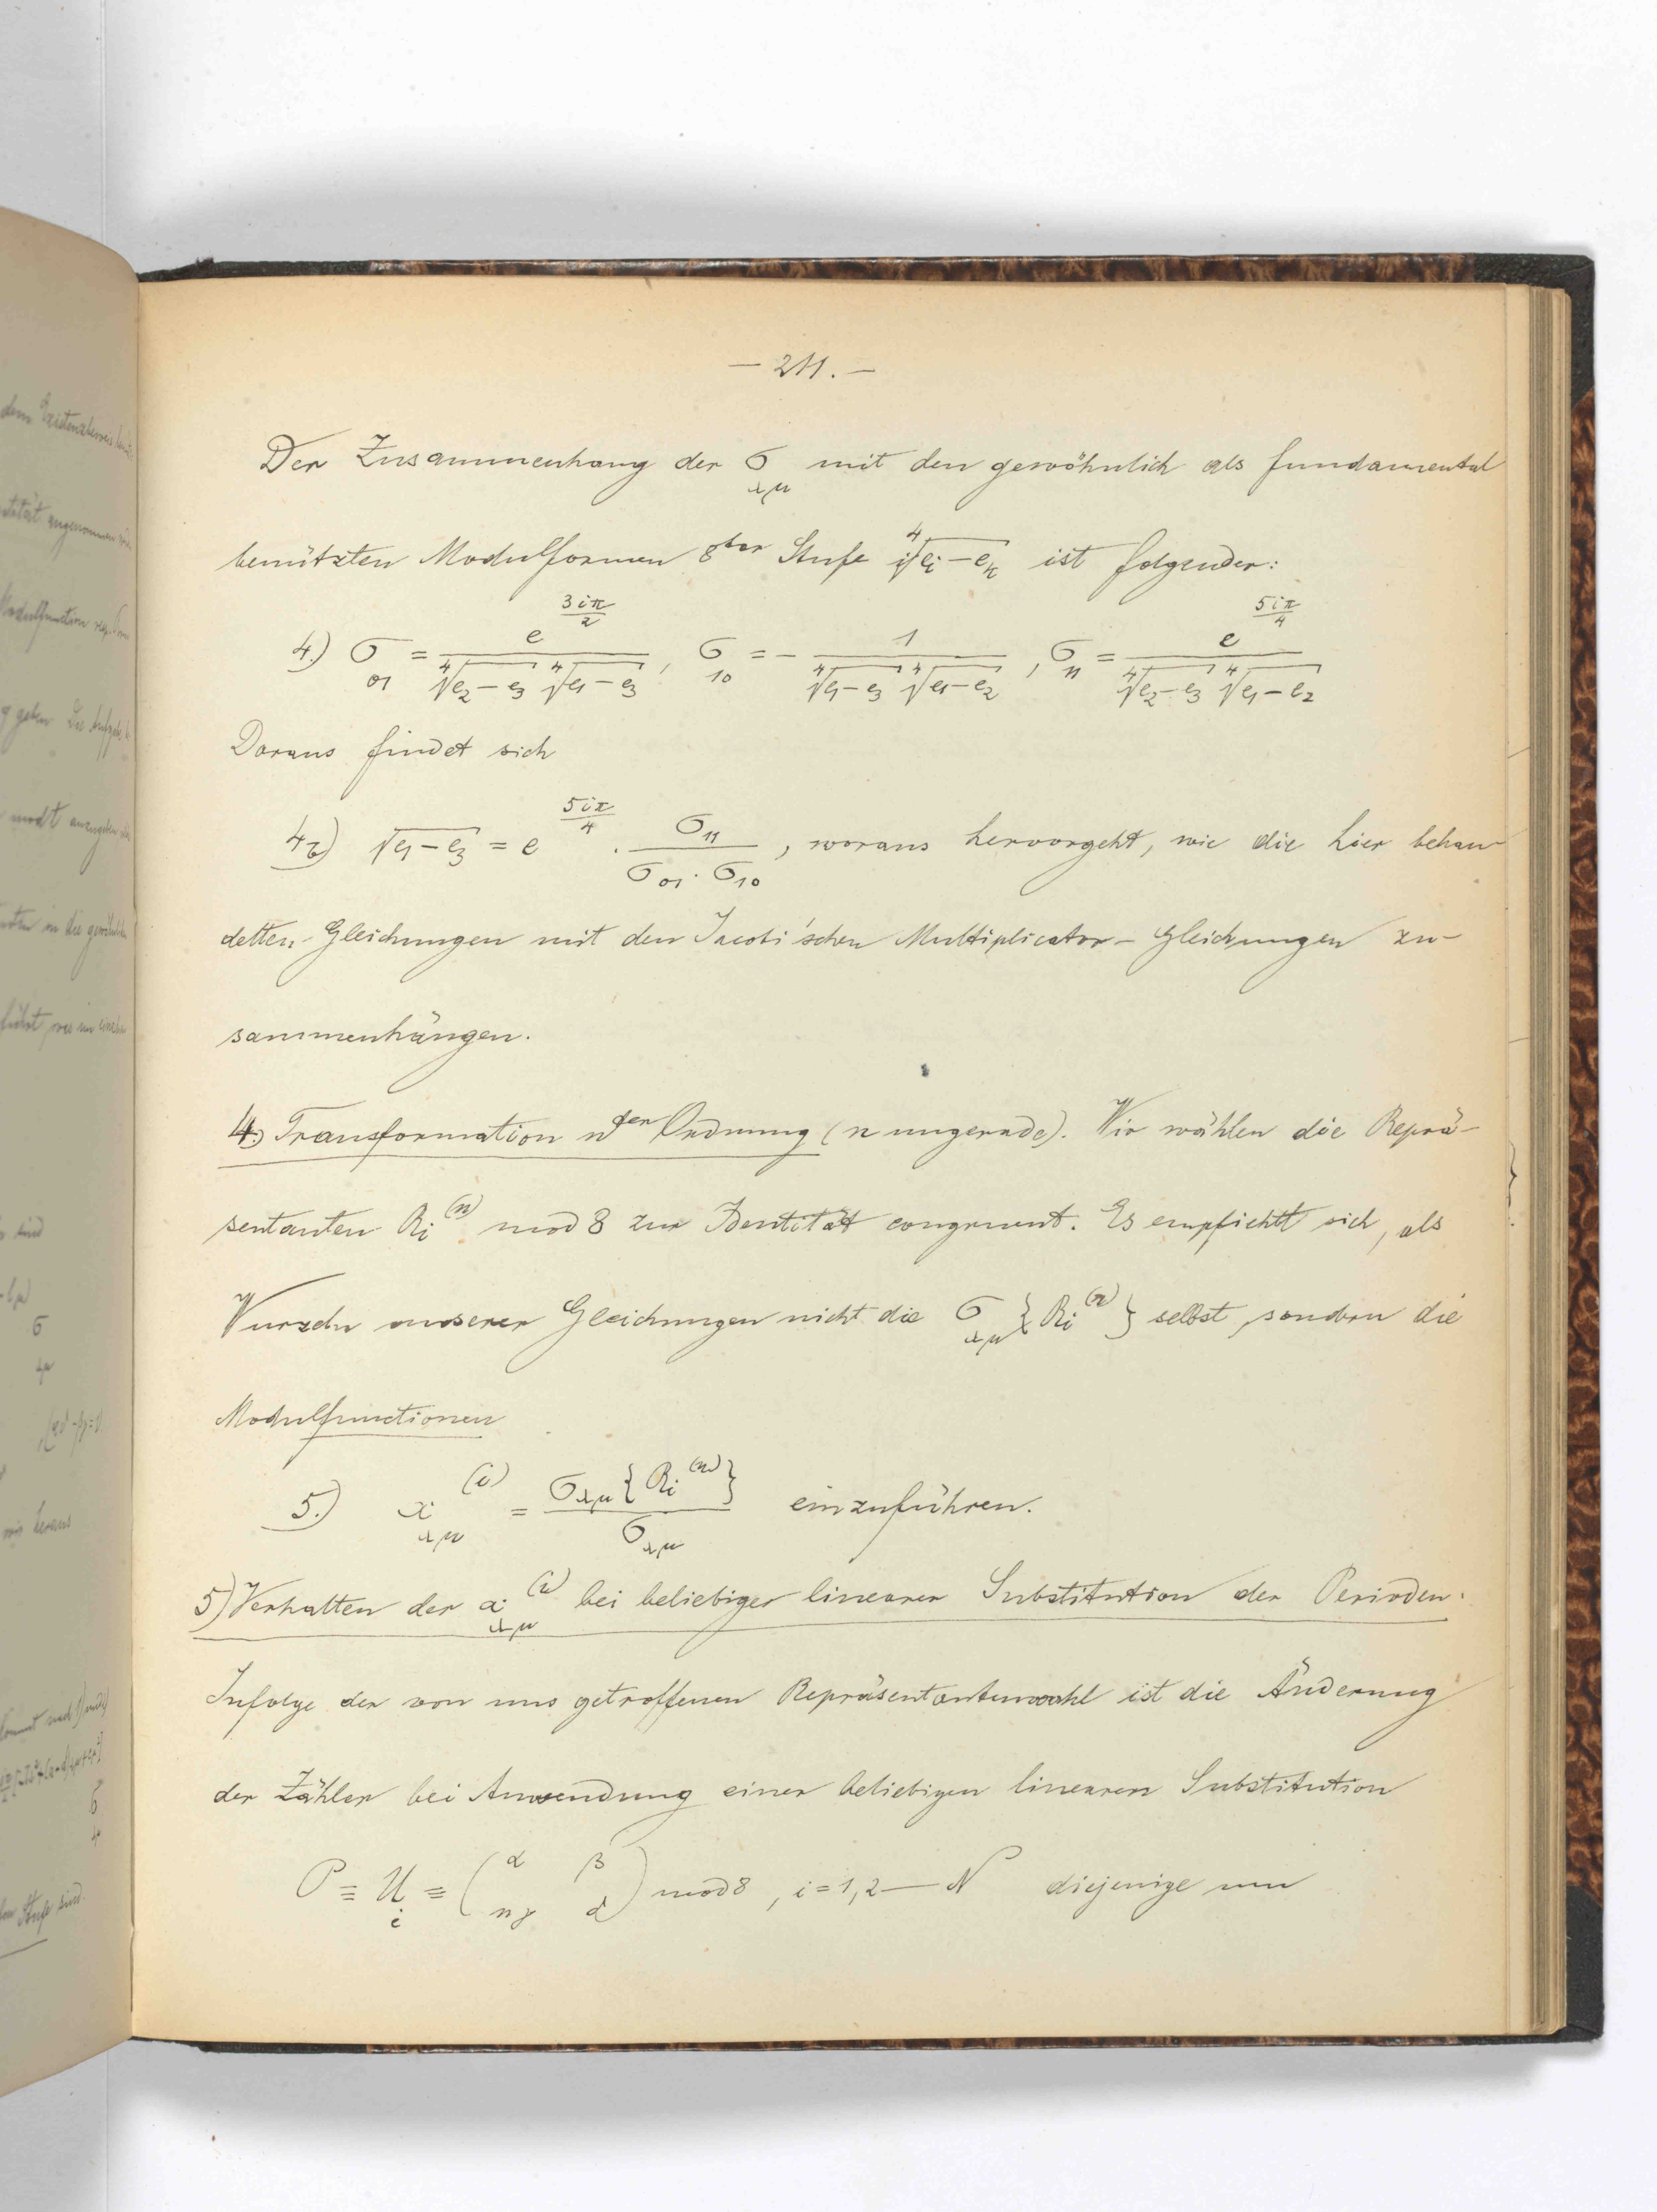 — 211. —
Der Zusammenhang der σ_λμ mit den gewöhnlich als fundamental
benützten Modulformen 8ter Stufe ∜(e_i − e_k) ist folgender:
4.) σ_01 = e^(3iπ/2) / (∜(e_2 − e_3) ∜(e_1 − e_3)), σ_10 = − 1 / (∜(e_1 − e_3) ∜(e_1 − e_2)), σ_11 = e^(5iπ/4) / (∜(e_2 − e_3) ∜(e_1 − e_2))
Daraus findet sich
4b) √(e_1 − e_3) = e^(5iπ/4) · σ_11 / (σ_01 · σ_10), woraus hervorgeht, wie die hier behan-
delten Gleichungen mit den Jacobi'schen Multiplicator-Gleichungen zu-
sammenhängen.
4.) Transformation nter Ordnung (n ungerade). Wir wählen die Reprä-
sentanten R_i^(n) mod 8 zur Identität congruent. Es empfiehlt sich, als
Wurzeln unserer Gleichungen nicht die σ_λμ {R_i^(n)} selbst, sondern die
Modulfunctionen
5.) x_λμ^(i) = σ_λμ {R_i^(n)} / σ_λμ einzuführen.
5) Verhalten der x_λμ^(i) bei beliebiger linearer Substitution der Perioden.
Infolge der von uns getroffenen Repräsentantenwahl ist die Änderung
der Zähler bei Anwendung einer beliebigen linearen Substitution
P ≡ U_i ≡ (α β / nγ δ) mod 8, i = 1, 2 — N diejenige um